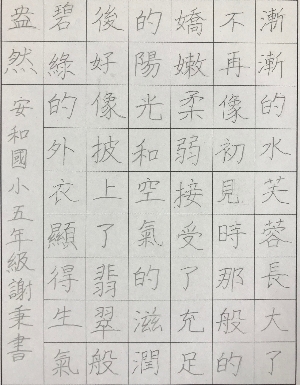 漸漸的水芙蓉長大了
不再像初見時那般的
嬌嫩柔弱接受了充足
的陽光和空氣的滋潤
後好像披上了翡翠般
碧綠的外衣顯得生氣
盎然
安和國小五年級謝秉書